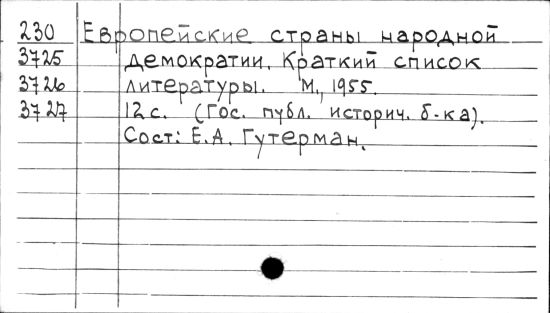 230 Европейские страны народной
3725 демократии. Краткий список
3726 литературы. М., 1955.
3727 12 с. (Гос. публ. историч. б-ка).
Сост: Е.А. Гутерман.